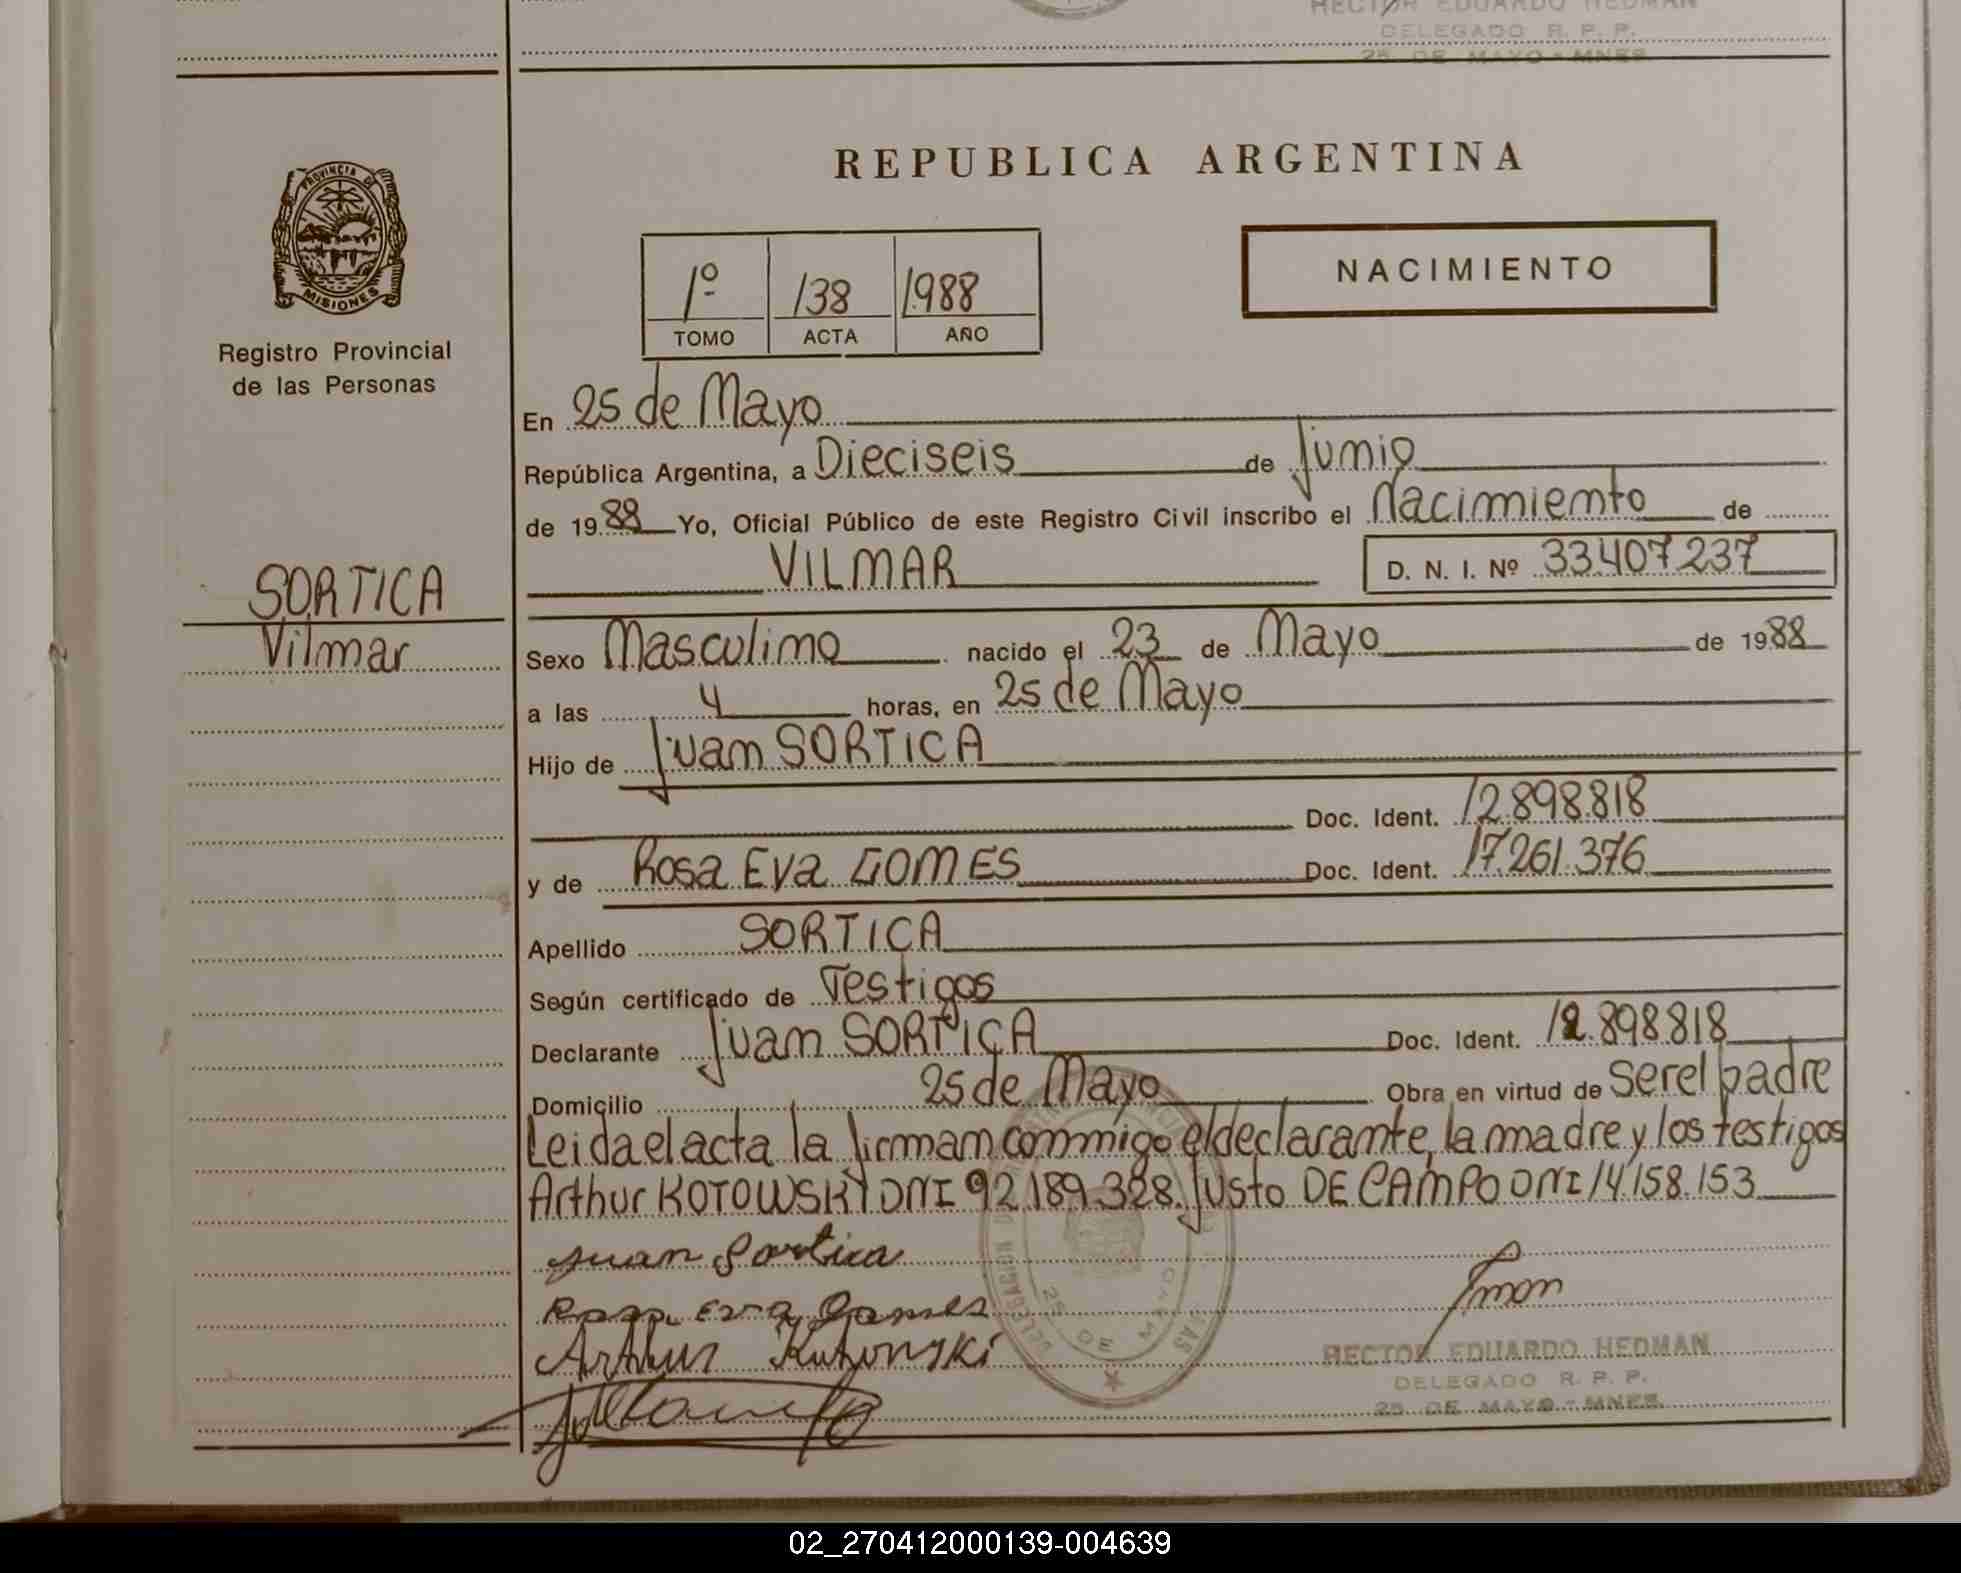 HECTOR EDUARDO HEDMAN
DELEGADO R. P. P.
25 DE MAYO - MNES
PROVINCIA DE
MISIONES
Registro Provincial
de las Personas
SORTICA
Vilmar
REPUBLICA ARGENTINA
1º 138 1988
TOMO ACTA AÑO
NACIMIENTO
En 25 de Mayo
República Argentina, a Dieciseis de Junio
de 1988 Yo, Oficial Público de este Registro Civil inscribo el Nacimiento de
VILMAR D. N. I. Nº 33.407.237
Sexo Masculino nacido el 23 de Mayo de 1988
a las 4 horas, en 25 de Mayo
Hijo de Juan SORTICA
Doc. Ident. 12.898.818
y de Rosa Eva GOMES Doc. Ident. 17.261.376
Apellido SORTICA
Según certificado de Testigos
Declarante Juan SORTICA Doc. Ident. 12.898.818
Domicilio 25 de Mayo Obra en virtud de ser el padre
Leida el acta la firman conmigo el declarante, la madre y los testigos
Arthur KOTOWSKI DNI 92.189.328. Justo DE CAMPO DNI 14.158.153
Juan Sortica
Rosa Eva Gomes
Arthur Kotowski
HECTOR EDUARDO HEDMAN
DELEGADO R. P. P.
25 DE MAYO - MNES.
02_270412000139-004639